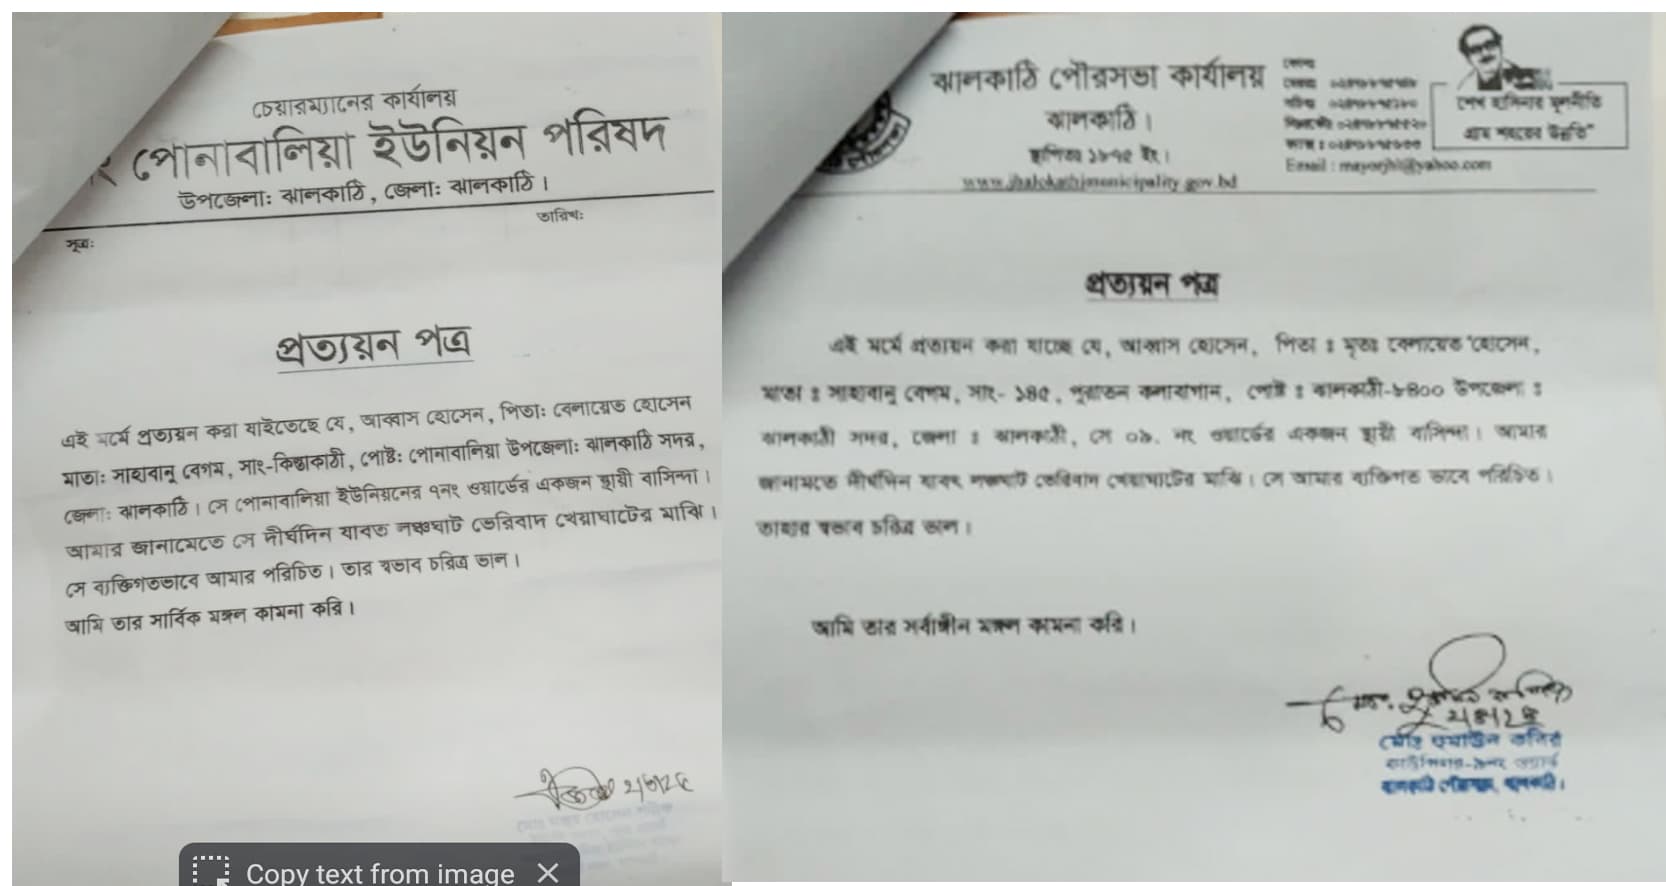 চেয়ারম্যানের কার্যালয়
পোনাবালিয়া ইউনিয়ন পরিষদ
উপজেলাঃ ঝালকাঠি, জেলাঃ ঝালকাঠি।
তারিখঃ
সূত্রঃ
প্রত্যয়ন পত্র
এই মর্মে প্রত্যয়ন করা যাইতেছে যে, আব্বাস হোসেন, পিতাঃ বেলায়েত হোসেন
মাতাঃ সাহাবানু বেগম, সাং-কিস্তাকাঠী, পোষ্টঃ পোনাবালিয়া উপজেলাঃ ঝালকাঠি সদর,
জেলাঃ ঝালকাঠি। সে পোনাবালিয়া ইউনিয়নের ৭নং ওয়ার্ডের একজন স্থায়ী বাসিন্দা।
আমার জানামেতে সে দীর্ঘদিন যাবত লঞ্চঘাট ভেরিবাদ খেয়াঘাটের মাঝি।
সে ব্যক্তিগতভাবে আমার পরিচিত। তার স্বভাব চরিত্র ভাল।
আমি তার সার্বিক মঙ্গল কামনা করি।
Copy text from image
ঝালকাঠি পৌরসভা কার্যালয়
ঝালকাঠি।
স্থাপিতঃ ১৮৭৫ ইং।
www.jhalokathimunicipality.gov.bd
Email : mayorjhl@yahoo.com
শেখ হাসিনার মূলনীতি
গ্রাম শহরের উন্নতি"
প্রত্যয়ন পত্র
এই মর্মে প্রত্যয়ন করা যাচ্ছে যে, আব্বাস হোসেন, পিতা ঃ মৃতঃ বেলায়েত হোসেন,
মাতা ঃ সাহাবানু বেগম, সাং- ১৪৫, পুরাতন কলাবাগান, পোষ্ট ঃ ঝালকাঠী-৮৪০০ উপজেলা ঃ
ঝালকাঠী সদর, জেলা ঃ ঝালকাঠী, সে ০৯. নং ওয়ার্ডের একজন স্থায়ী বাসিন্দা। আমার
জানামতে দীর্ঘদিন যাবৎ লঞ্চঘাট ভেরিবাদ খেয়াঘাটের মাঝি। সে আমার ব্যক্তিগত ভাবে পরিচিত।
তাহার স্বভাব চরিত্র ভাল।
আমি তার সর্বাঙ্গীন মঙ্গল কামনা করি।
মোঃ হুমায়ুন কবির